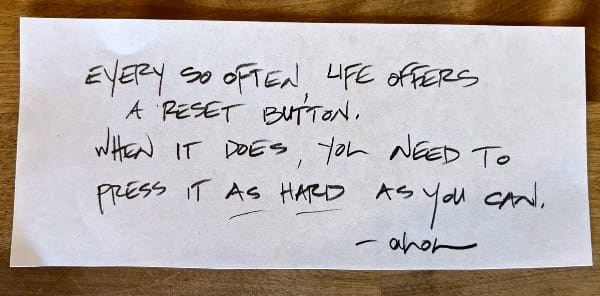 EVERY SO OFTEN, LIFE OFFERS
A RESET BUTTON.
WHEN IT DOES, YOU NEED TO
PRESS IT AS HARD AS YOU CAN.